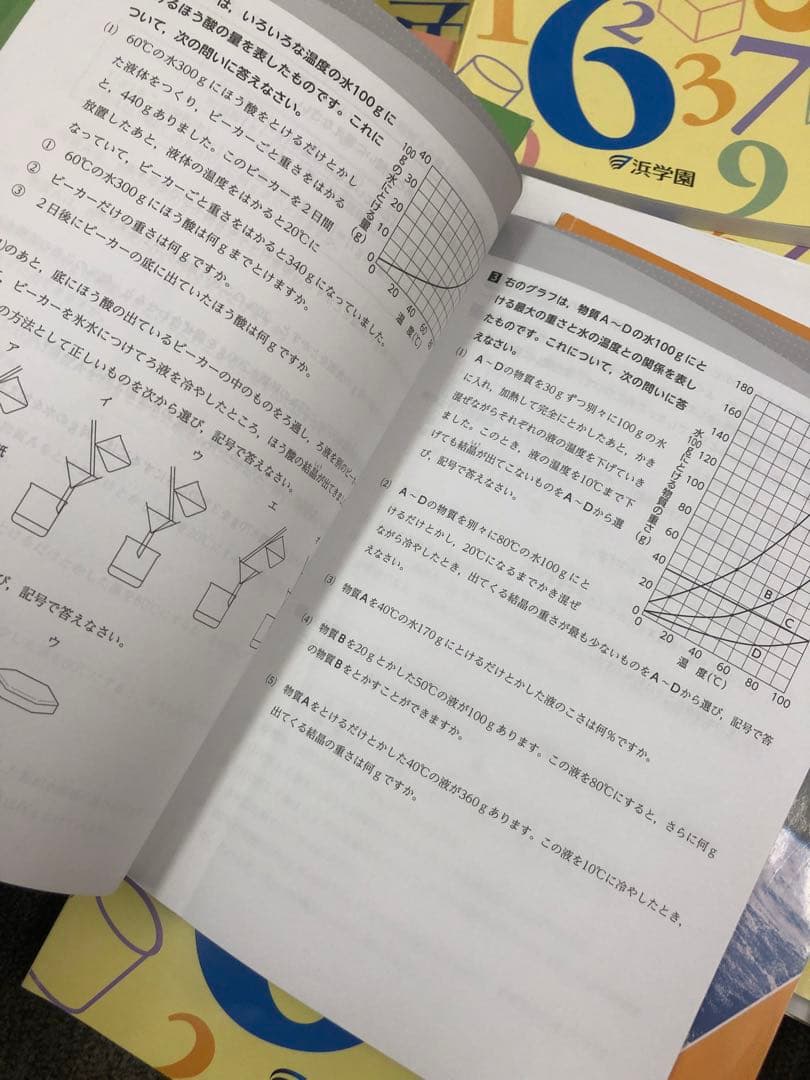 は、いろいろな温度の水100gに
けるほう酸の量を表したものです。これに
ついて、次の問いに答えなさい。
(1) 60℃の水300gにほう酸をとけるだけとかし
た液体をつくり、ビーカーごと重さをはかる
と、440gありました。このビーカーを2日間
放置したあと、液体の温度をはかると20℃に
なっていて、ビーカーごと重さをはかると340gになっていました。
① 60℃の水300gにほう酸は何gまでとけますか。
② ビーカーだけの重さは何gですか。
③ 2日後にビーカーの底に出ていたほう酸は何gですか。
のあと、底にほう酸の出ているビーカーの中のものをろ過し、ろ液を別のビー
、ビーカーを氷水につけてろ液を冷やしたところ、ほう酸の結晶が出てきまし
の方法として正しいものを次から選び、記号で答えなさい。
ア
イ
ウ
エ
紙
び、記号で答えなさい。
ウ
100gの水にとける量(g)
40
30
20
10
0
0
20
40
60
温度(℃)
3 右のグラフは、物質A～Dの水100gにと
ける最大の重さと水の温度との関係を表し
たものです。これについて、次の問いに答
えなさい。
(1) A～Dの物質を30gずつ別々に100gの水
に入れ、加熱して完全にとかしたあと、かき
混ぜながらそれぞれの液の温度を下げていき
ました。このとき、液の温度を10℃まで下
げても結晶が出てこないものをA～Dから選
び、記号で答えなさい。
(2) A～Dの物質を別々に80℃の水100gにと
けるだけとかし、20℃になるまでかき混ぜ
ながら冷やしたとき、出てくる結晶の重さが最も少ないものをA～Dから選び、記号で答
えなさい。
(3) 物質Aを40℃の水170gにとけるだけとかした液のこさは何%ですか。
(4) 物質Bを20gとかした50℃の液が100gあります。この液を80℃にすると、さらに何g
の物質Bをとかすことができますか。
(5) 物質Aをとけるだけとかした40℃の液が360gあります。この液を10℃に冷やしたとき、
出てくる結晶の重さは何gですか。
水100gにとける物質の重さ(g)
180
160
140
120
100
80
60
40
20
0
0
20
40
60
80
100
温度(℃)
B
C
D
1
6
2
3
7
9
浜学園